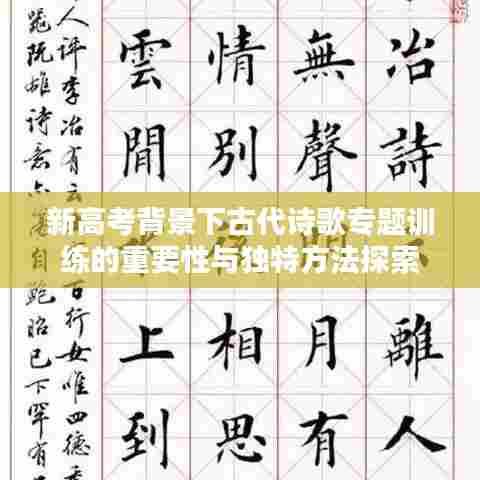 新高考背景下古代诗歌专题训
练的重要性与独特方法探索
冶詩離人
無聲月有
情別相思
雲間上到
人评李冶有云百行女唯四德
雄诗意亦自鲍昭已下罕有